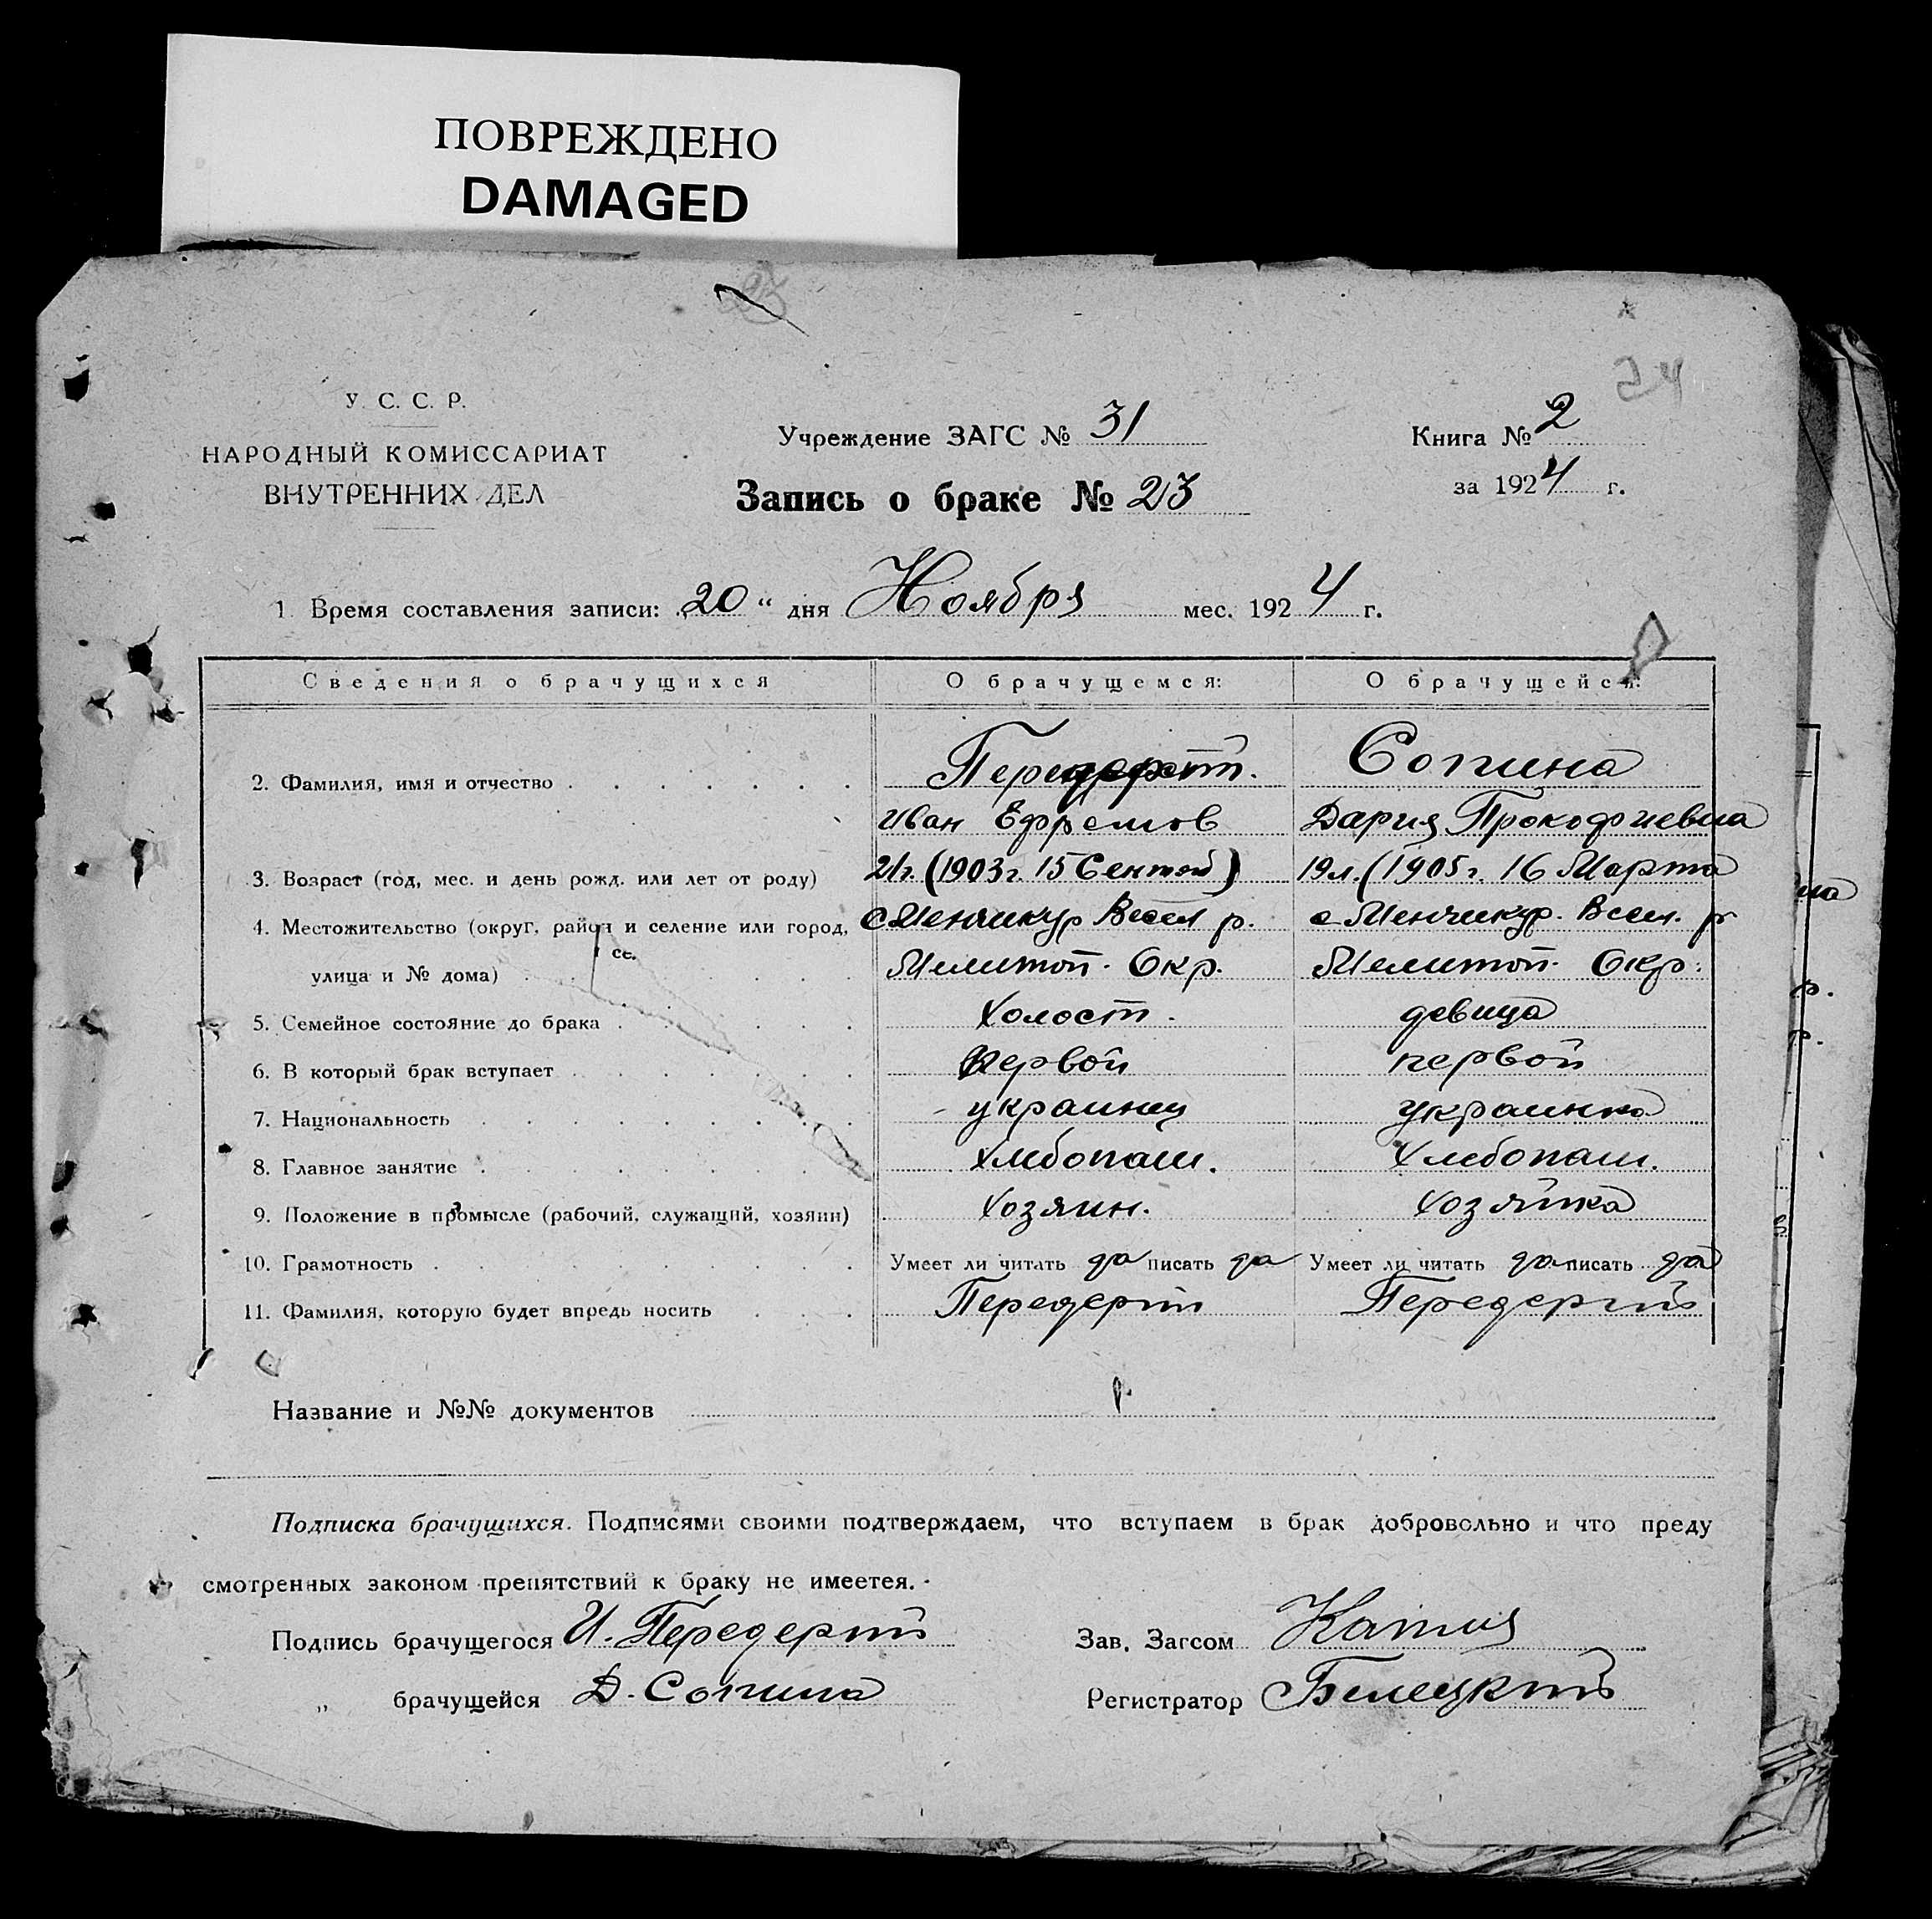 ПОВРЕЖДЕНО
DAMAGED
23
24
У. С. С. Р.
НАРОДНЫЙ КОМИССАРИАТ
ВНУТРЕННИХ ДЕЛ
Учреждение ЗАГС № 31
Книга № 2
за 1924 г.
Запись о браке № 23
1. Время составления записи: „20“ дня Ноября мес. 1924 г.
Сведения о брачущихся О брачущемся: О брачущейся:
2. Фамилия, имя и отчество Передерий. Сопина
Иван Ефремов Дария Прокофиевна
3. Возраст (год, мес. и день рожд. или лет от роду) 21г. (1903г. 15 Сентяб) 19л. (1905г. 16 Марта
4. Местожительство (округ, район и селение или город, с Менчикур Весел р. с Менчикур. Весел. р
улица и № дома) Мелитоп. Окр. Мелитоп. Окр.
5. Семейное состояние до брака Холост. девица
6. В который брак вступает Первой первой
7. Национальность украинец украинка
8. Главное занятие Хлебопаш. Хлебопаш.
9. Положение в промысле (рабочий, служащий, хозяин) Хозяин. Хозяйка
10. Грамотность Умеет ли читать да писать да Умеет ли читать да писать да
11. Фамилия, которую будет впредь носить Передерий Передерий
Название и №№ документов
Подписка брачущихся. Подписями своими подтверждаем, что вступаем в брак добровольно и что преду
смотренных законом препятствий к браку не имеетея.
Подпись брачущегося И. Передерий Зав. Загсом
„ брачущейся Д. Сопина Регистратор Белецкий